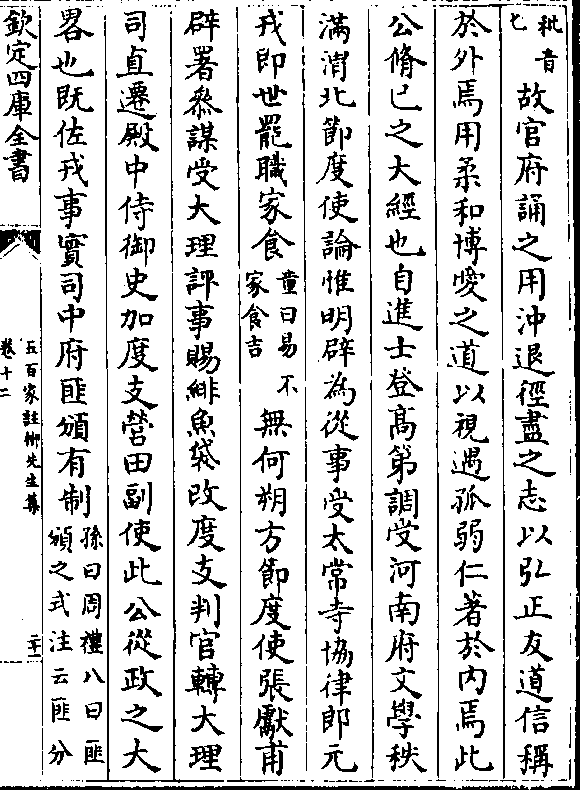 秕音
匕
故官府誦之用沖退徑盡之志以弘正友道信稱
於外焉用柔和博愛之道以視遇孤弱仁著於内焉此
公脩已之大經也自進士登髙第調受河南府文學秩
滿渭北節度使論惟明辟為從事受太常寺協律郎元
戎即世罷職家食
童曰易不
家食吉
無何朔方節度使張獻甫
辟署叅謀受大理評事賜緋魚袋改度支判官轉大理
司直遷殿中侍御史加度支營田副使此公從政之大
畧也既佐戎事實司中府匪頒有制
孫曰周禮八曰匪
頒之式注云匪分
欽定四庫全書
五百家註柳先生集
卷十二
二十一